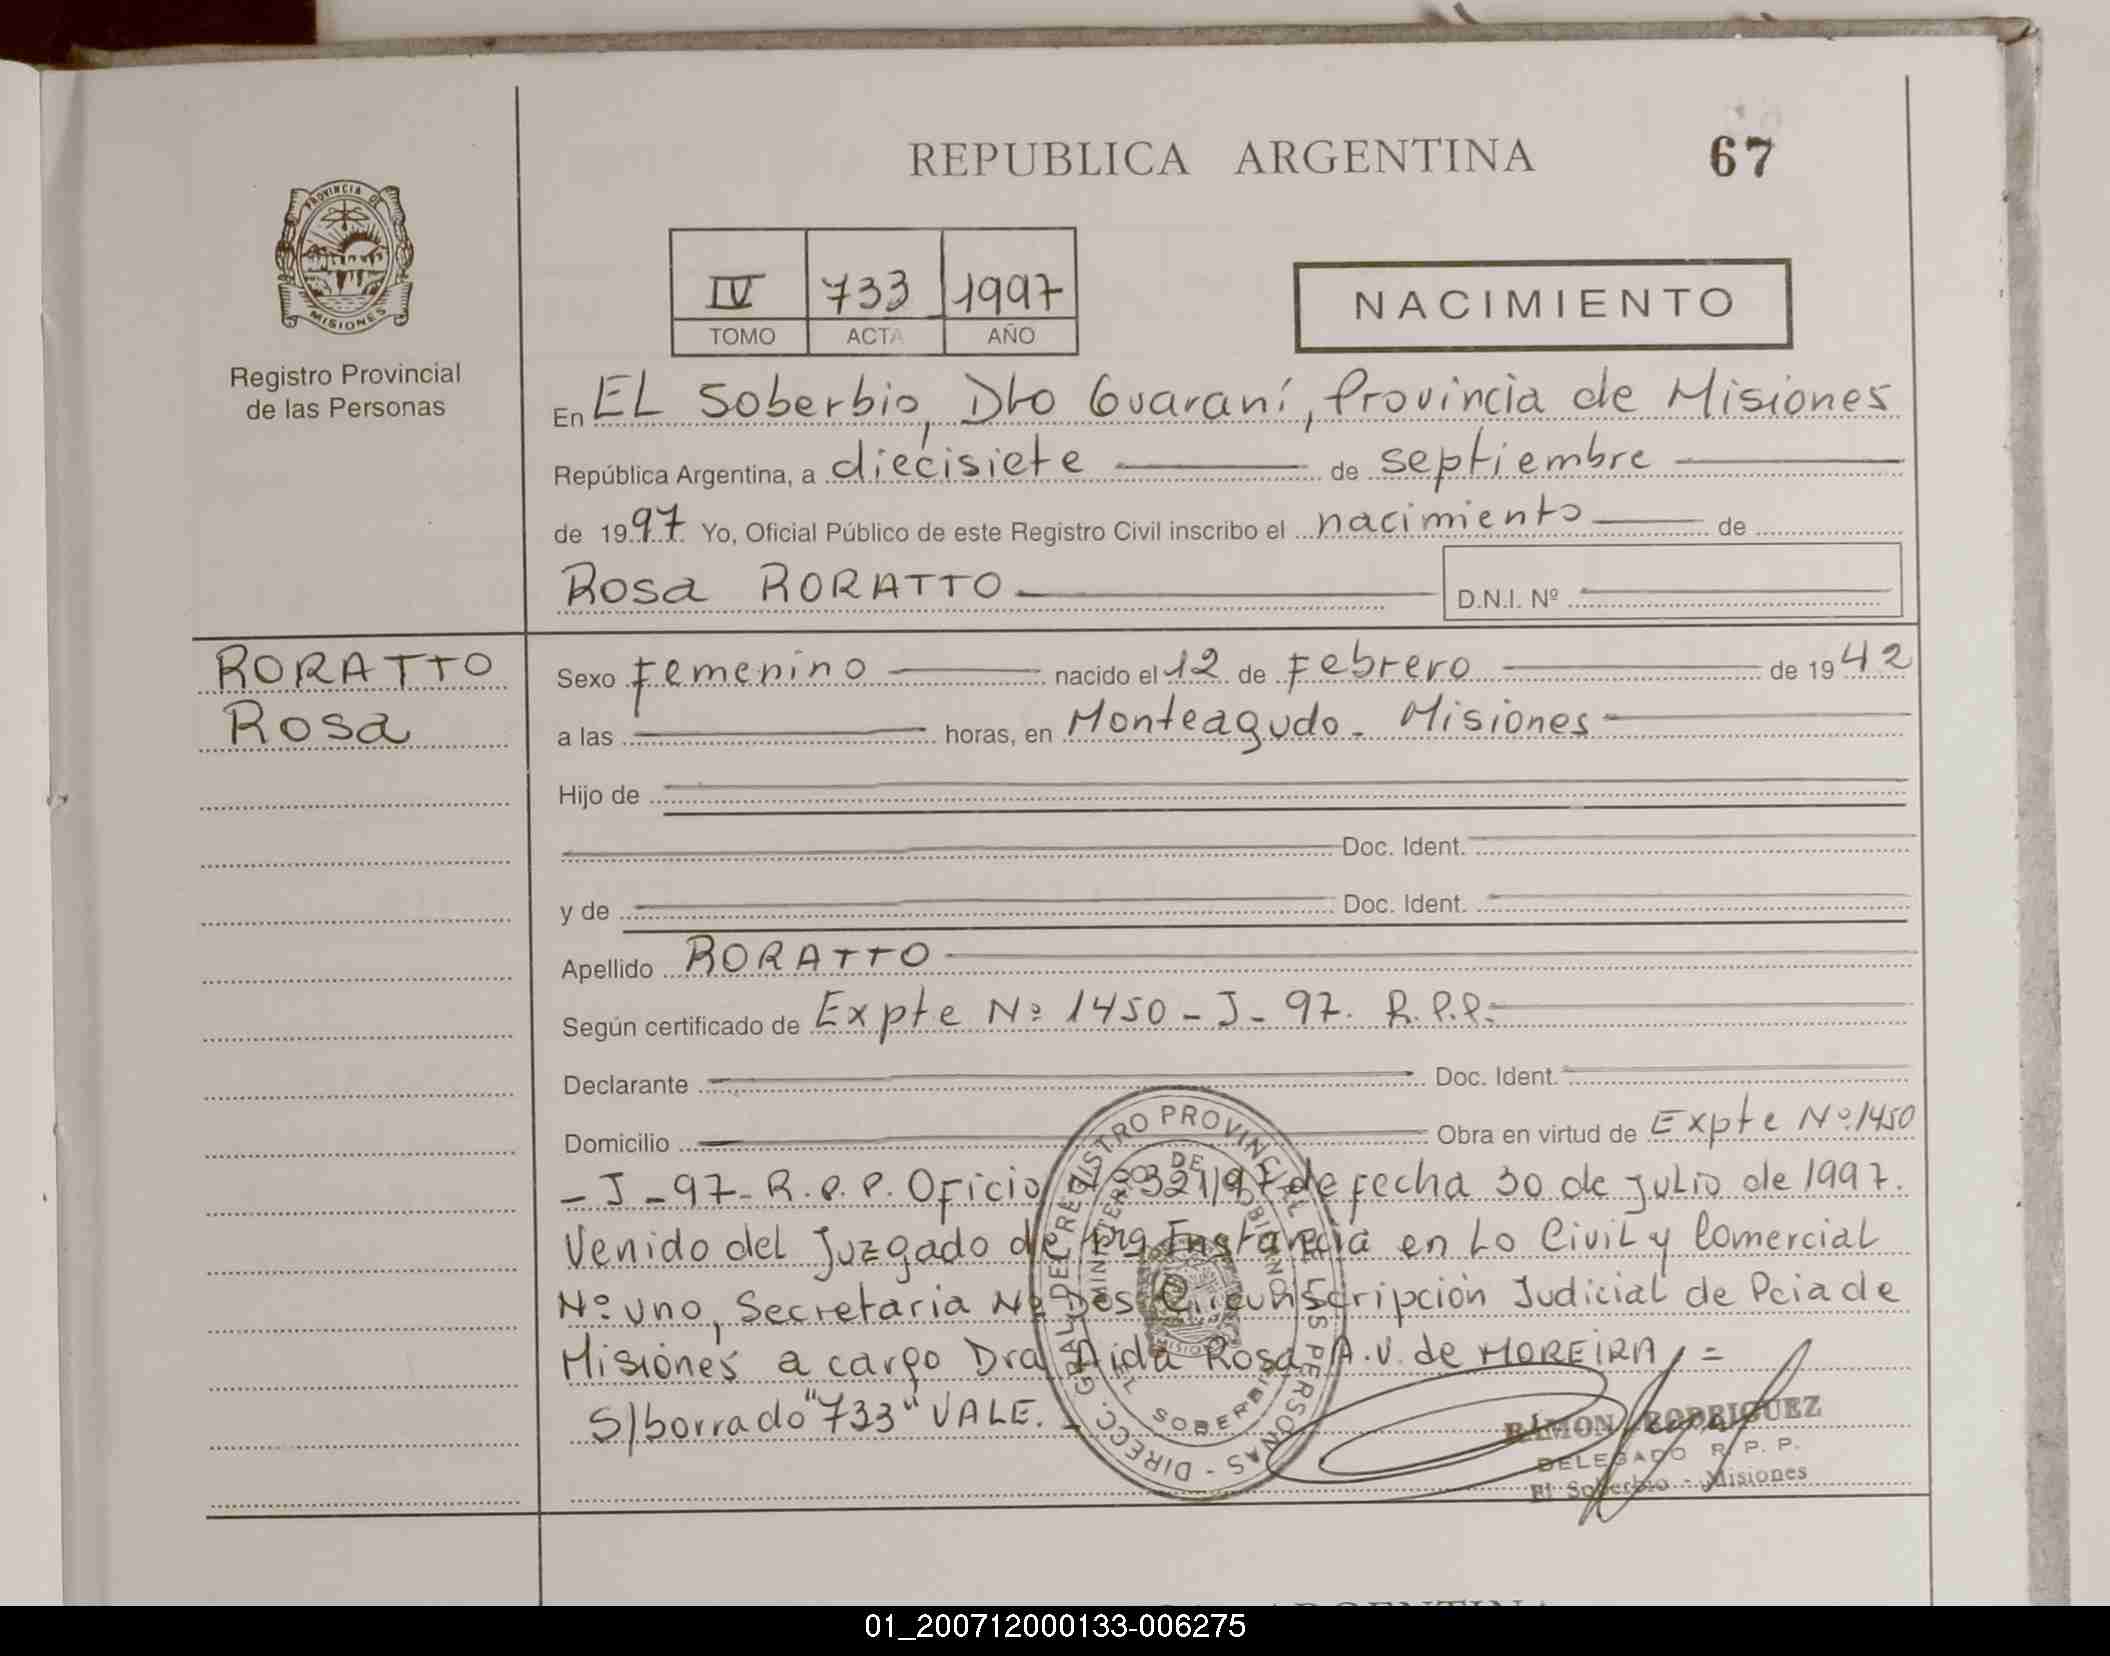 REPUBLICA ARGENTINA
67
PROVINCIA DE
MISIONES
Registro Provincial
de las Personas
IV 733 1997
TOMO ACTA AÑO
NACIMIENTO
En EL Soberbio, Dto Guaraní, Provincia de Misiones
República Argentina, a diecisiete de septiembre
de 1997 Yo, Oficial Público de este Registro Civil inscribo el nacimiento de
Rosa RORATTO
D.N.I. Nº
RORATTO
Rosa
Sexo Femenino nacido el 12 de Febrero de 1942
a las horas, en Monteagudo - Misiones
Hijo de
Doc. Ident.
y de Doc. Ident.
Apellido RORATTO
Según certificado de Expte Nº 1450 - J - 97. R.P.P.
Declarante Doc. Ident.
Domicilio Obra en virtud de Expte Nº 1450
- J - 97 - R.P.P. Oficio Nº 321/97 de fecha 30 de Julio de 1997.
Venido del Juzgado de 1ra Instancia en Lo Civil y Comercial
Nº uno, Secretaria Nº Dos Circunscripción Judicial de Pcia de
Misiones a cargo Dra Aida Rosa A.V. de MOREIRA =
S/borrado "733" VALE. -
DIRECC. GRAL. DEL REGISTRO PROVINCIAL DE LAS PERSONAS -
MINISTERIO DE GOBIERNO
EL SOBERBIO
MISIONES
RAMON RODRIGUEZ
DELEGADO R. P. P.
El Soberbio - Misiones
ARGENTINA
01_200712000133-006275